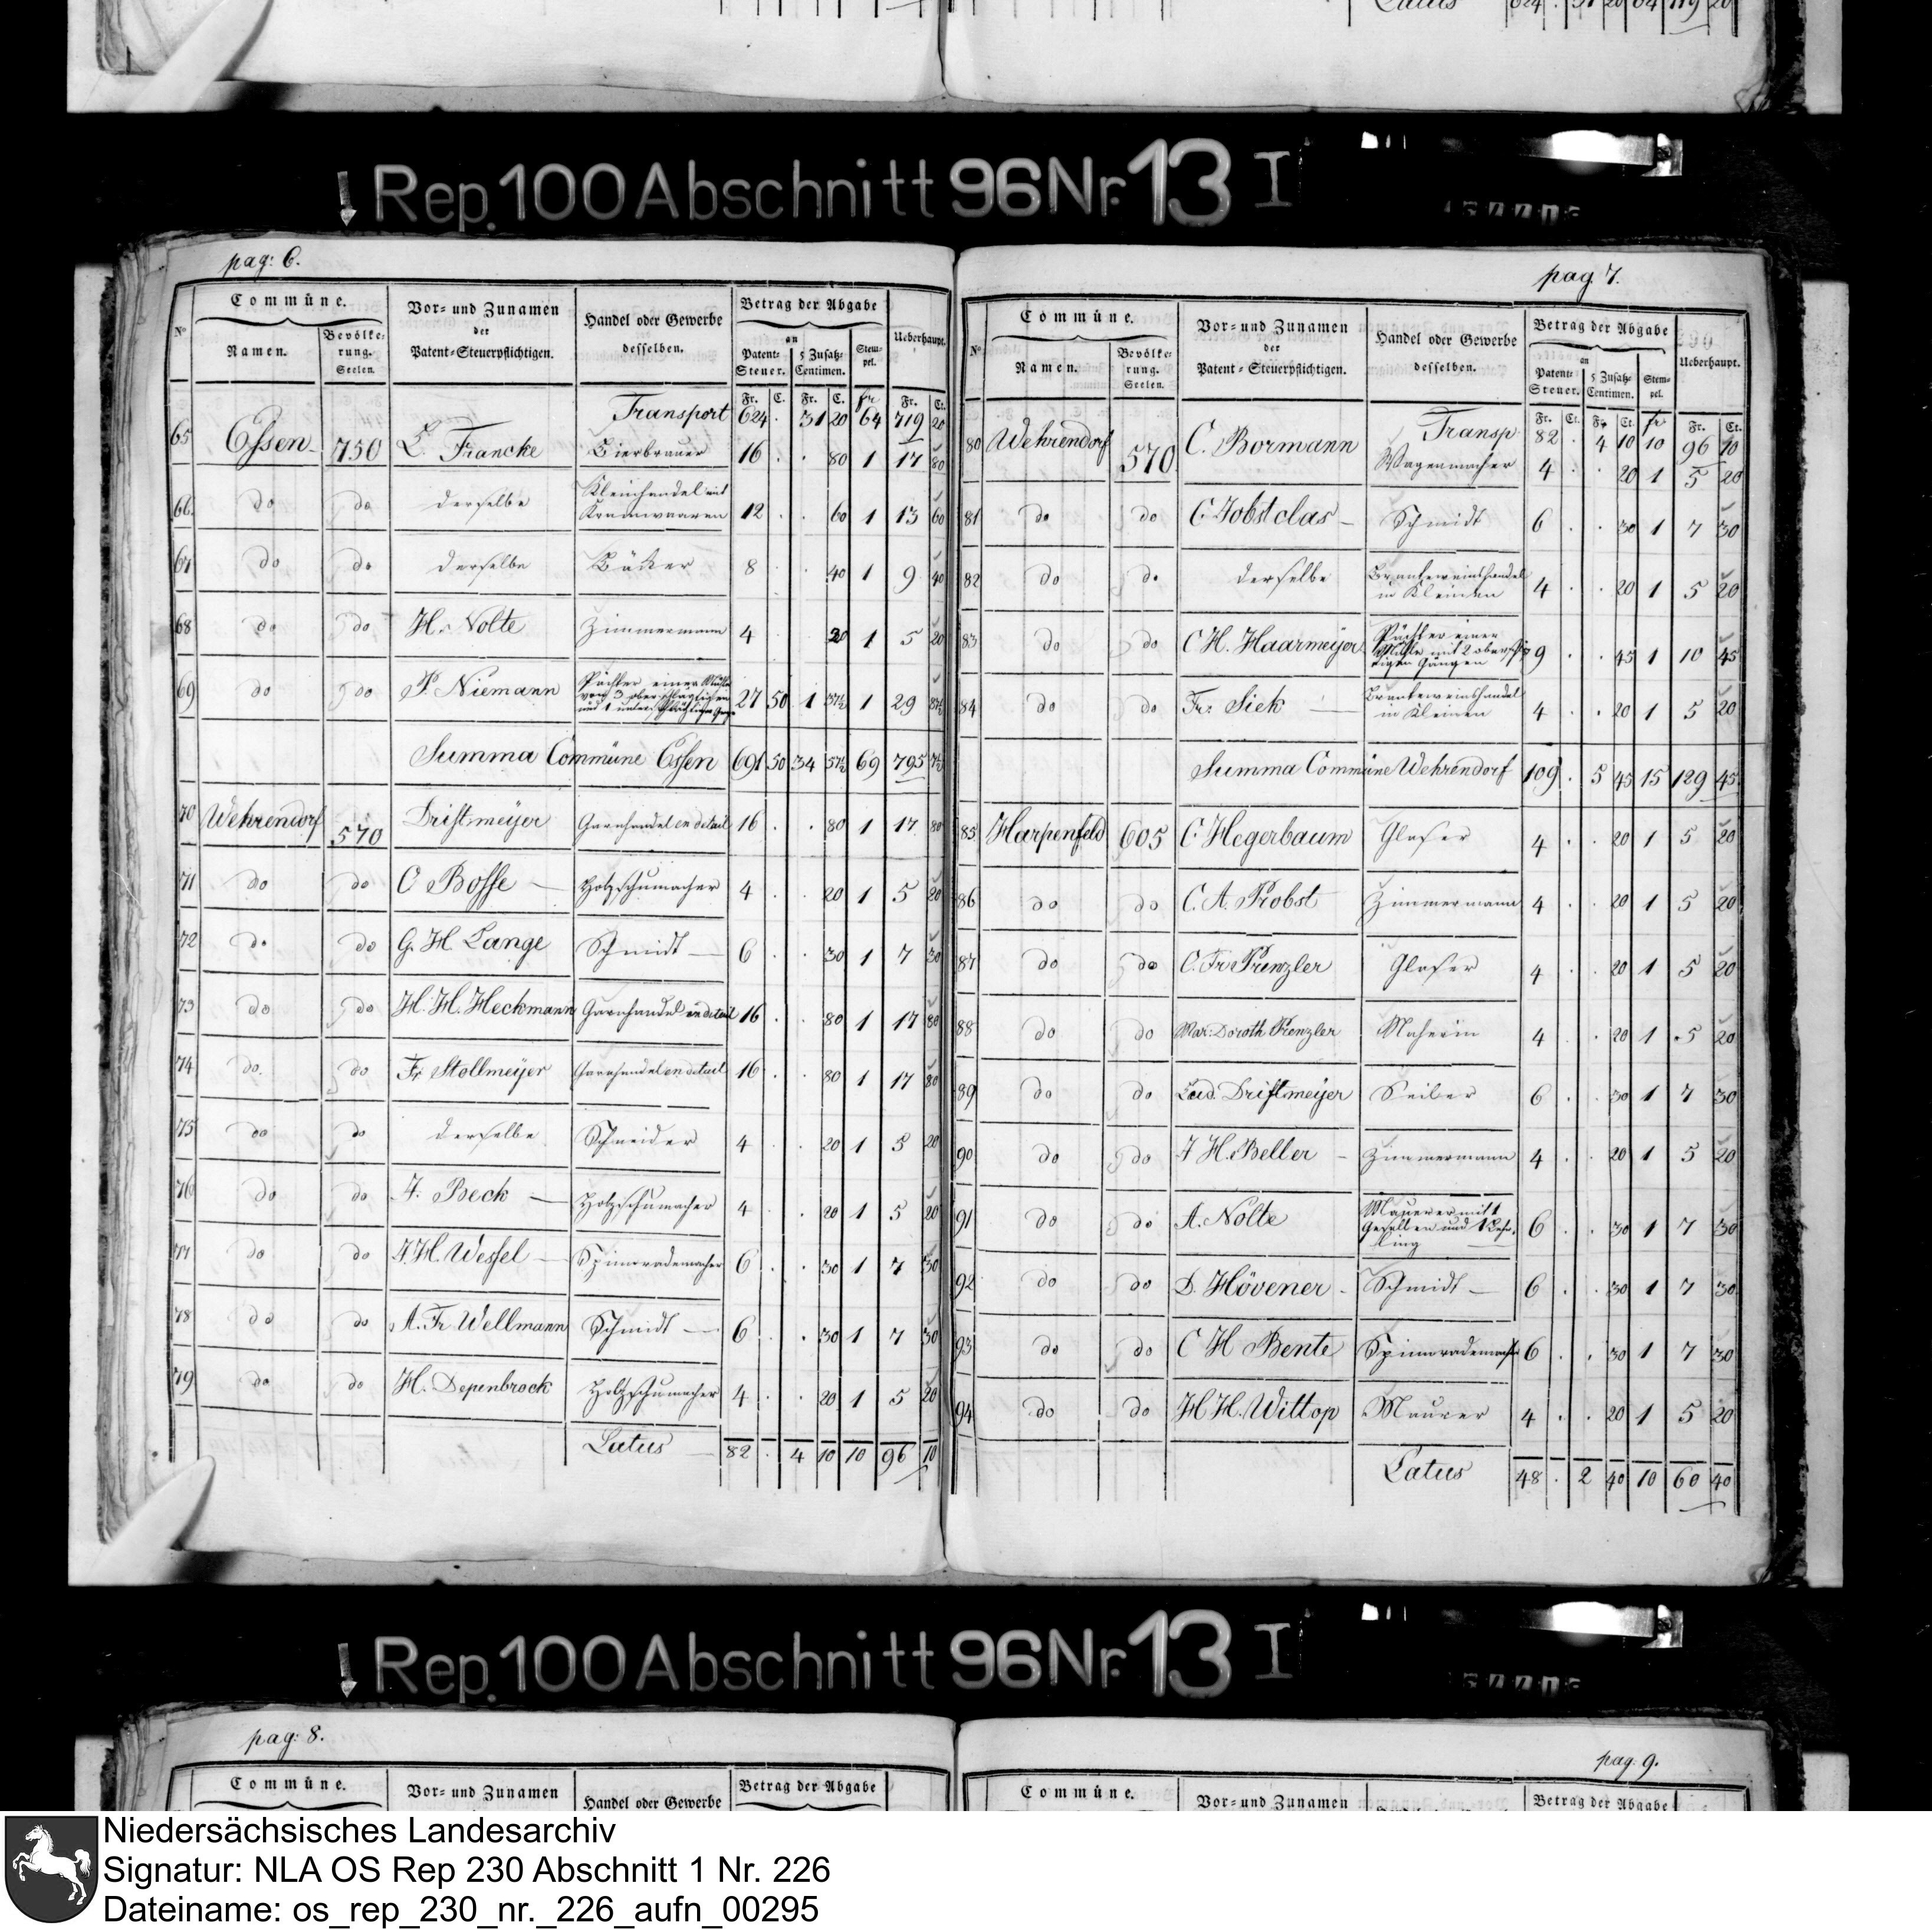 Latus 624 . 31 20 64 719 20
Rep. 100 Abschnitt 96 Nr. 13 I
pag: 6.
Commüne.
Vor- und Zunamen
der
Patent-Steuerpflichtigen.
Handel oder Gewerbe
desselben.
Betrag der Abgabe
an
Ueberhaupt.
No
Namen.
Bevölke-
rung.
Seelen.
Patent-
Steuer.
5 Zusatz-
Centimen.
Stem-
pel.
Fr. C. Fr. C. fr Fr. Ct.
Transport 624 . 31 20 64 719 20
65 Essen 750 L. Francke Bierbrauer 16 . . 80 1 17 80
66 do do derselbe Kleinhandel mit
Kramwaaren 12 . . 60 1 13 60
67 do do derselbe Bäcker 8 . . 40 1 9 40
68 do do H. Nolte Zimmermann 4 20 1 5 20
69 do do P. Niemann Pächter einer Mühle
von 3 oberschlächtigen
und 1 unterschlächtigen Gange 27 50 1 37½ 1 29 87½
Summa Commüne Essen 691 50 34 57½ 69 795 7½
70 Wehrendorf 570 Driftmeyer Garnhandel en detail 16 . . 80 1 17 80
71 do do C Bosse Holzschumacher 4 . . 20 1 5 20
72 do do G. H Lange Schmidt 6 . . 30 1 7 30
73 do do H. H. Heckmann Garnhandel en detail 16 . . 80 1 17 80
74 do. do Fr Stollmeyer Garnhandel en detail 16 . . 80 1 17 80
75 do do derselbe Schneider 4 . . 20 1 5 20
76 do do F. Beck Holzschumacher 4 . . 20 1 5 20
77 do do F. H. Wessel Spinnrademacher 6 . . 30 1 7 30
78 do do A. Fr. Wellmann Schmidt 6 . . 30 1 7 30
79 do do H. Depenbrock Holzschumacher 4 . . 20 1 5 20
Latus 82 . 4 10 10 96 10
pag 7.
Commüne.
Vor- und Zunamen
der
Patent-Steuerpflichtigen.
Handel oder Gewerbe
desselben.
Betrag der Abgabe
an
290
Ueberhaupt.
No
Namen.
Bevölke-
rung.
Seelen.
Patent-
Steuer.
5 Zusatz-
Centimen.
Stem-
pel.
Fr. Ct. Fr. Ct. fr Fr. Ct.
Transp 82 . 4 10 10 96 10
80 Wehrendorf 570 C. Bormann Wagenmacher 4 . . 20 1 5 20
81 do do C. Jobstclas Schmidt 6 . . 30 1 7 30
82 do do derselbe Branteweinshandel
in Kleinen 4 . . 20 1 5 20
83 do do C H. Haarmeyer Pächter einer
Mühle mit 2 oberschläch-
tigen Gängen 9 . . 45 1 10 45
84 do do Fr. Siek Branteweinshandel
in Kleinen 4 . . 20 1 5 20
Summa Commüne Wehrendorf 109 . 5 45 15 129 45
85 Harpenfeld 605 C. Hegerbaum Glaser 4 . . 20 1 5 20
86 do do C. A. Probst Zimmermann 4 . . 20 1 5 20
87 do do C. Fr. Prenzler Glaser 4 . . 20 1 5 20
88 do do Mar: Doroth Prenzler Naherin 4 . . 20 1 5 20
89 do do Lud. Driftmeyer Seiler 6 . . 30 1 7 30
90 do do F H. Beller Zimmermann 4 . . 20 1 5 20
91 do do A. Nolte Mauerer mit 1
Gesellen und 1 Lehr-
ling 6 . . 30 1 7 30
92 do do D. Hövener Schmidt 6 . . 30 1 7 30
93 do do C H Bente Spinnrademacher 6 . . 30 1 7 30
94 do do H H. Wittop Maurer 4 . . 20 1 5 20
Latus 48 . 2 40 10 60 40
Rep. 100 Abschnitt 96 Nr. 13 I
pag: 8.
Commüne.
Vor- und Zunamen
Handel oder Gewerbe
Betrag der Abgabe
pag. 9.
Commüne.
Vor- und Zunamen
Betrag der Abgabe
Niedersächsisches Landesarchiv
Signatur: NLA OS Rep 230 Abschnitt 1 Nr. 226
Dateiname: os_rep_230_nr._226_aufn_00295